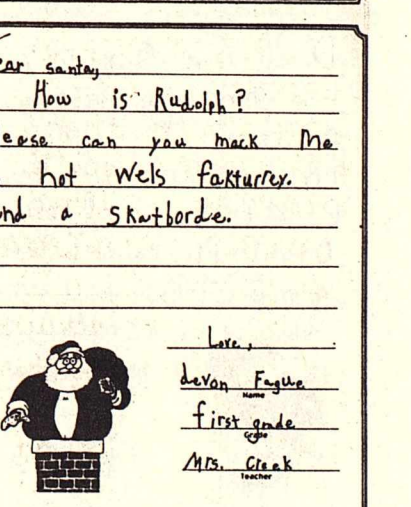 ear santa,
How is Rudolph?
ease can you mack Me
hot Wels fakturrey.
nd a skatborde.
Love,
devon Fague
Name
first grade
Grade
Mrs. Creek
Teacher